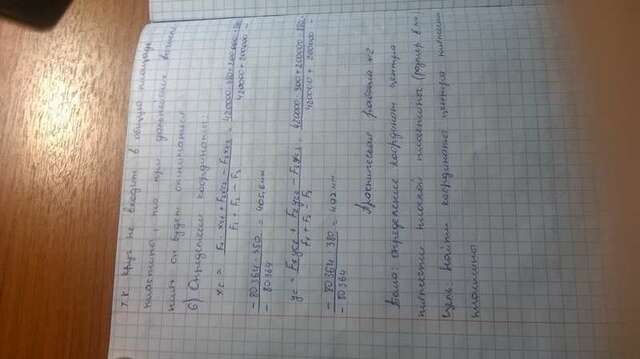 т.к. круг не входит в общую площадь
пластины, то при дальнейших вычис-
он будет отниматься.
6) Определяем координаты:
xc = F1·xc1 + F2xc2 − F3xc3 / F1 + F2 − F3 = 420000·
− 80364·350 / − 80364 = 405,6 мм
yc = F1yc1 + F2yc2 − F3yc3 / F1 + F2 − F3 = 420000·300 + 200000·
− 80364·380 / − 80364 = 402 мм
Практическая работа №2
определение координат центра
тяжести плоской пластины (размер в м
Цель: найти координаты центра тяжести
пластины